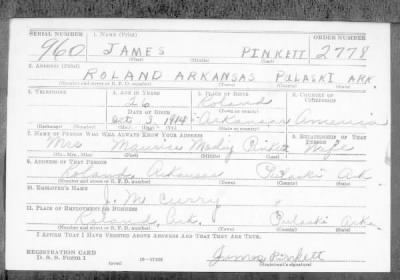 SERIAL NUMBER 1. NAME (Print) ORDER NUMBER
960 JAMES PINKETT 2778
(First) (Middle) (Last)
2. ADDRESS (Print)
ROLAND ARKANSAS PULASKI ARK.
(Number and street or R. F. D. number) (Town) (County) (State)
3. TELEPHONE 4. AGE IN YEARS 5. PLACE OF BIRTH 6. COUNTRY OF CITIZENSHIP
26 Roland
DATE OF BIRTH (Town or county)
Oct 3, 1914 Arkansas American
(Exchange) (Number) (Mo.) (Day) (Yr.) (State or country)
7. NAME OF PERSON WHO WILL ALWAYS KNOW YOUR ADDRESS 8. RELATIONSHIP OF THAT PERSON
Mrs Pinkett Wife
(Mr., Mrs., Miss) (First) (Middle) (Last)
9. ADDRESS OF THAT PERSON
Roland, Arkansas Pulaski Ark
(Number and street or R. F. D. number) (Town) (County) (State)
10. EMPLOYER'S NAME
J. M. Curry
11. PLACE OF EMPLOYMENT OR BUSINESS
Roland, Ark. Pulaski Ark.
(Number and street or R. F. D. number) (Town) (County) (State)
I AFFIRM THAT I HAVE VERIFIED ABOVE ANSWERS AND THAT THEY ARE TRUE.
REGISTRATION CARD
D. S. S. Form 1 (over) James Pinkett
(Registrant's signature)